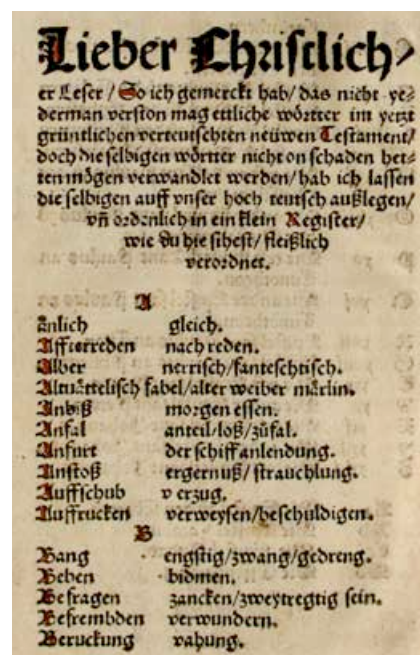 Lieber Christlich⸗
er Leser / So ich gemerckt hab / das nicht ye⸗
derman verston mag ettliche wörtter im yetzt
grüntlichen verteutschten neüwen Testament /
doch die selbigen wörtter nicht on schaden het⸗
ten mögen verwandlet werden / hab ich lassen
die selbigen auff vnser hoch teutsch außlegen /
vñ ordenlich in ein klein Register /
wie du hie sihest / fleißlich
verordnet.
A
Änlich gleich.
Affterreden nach reden.
Alber nerrisch / fanteschtisch.
Altuättelisch fabel / alter weiber märlin.
Anbiß morgen essen.
Anfal anteil / loß / zůfal.
Anfurt der schiff anlendung.
Anstoß ergernuß / strauchlung.
Auffschub verzug.
Auffrucken verweysen / beschuldigen.
B
Bang engstig / zwang / gedreng.
Beben bidmen.
Befragen zancken / zweytregtig sein.
Befrembden verwundern.
Beruckung vahung.